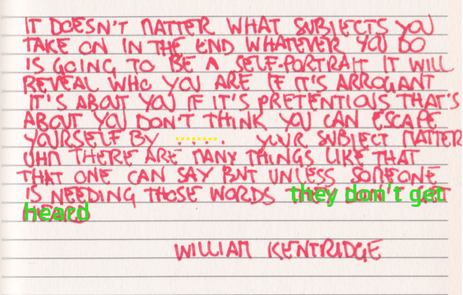 IT DOESN'T MATTER WHAT SUBJECTS YOU
TAKE ON IN THE END WHATEVER YOU DO
IS GOING TO BE A SELF-PORTRAIT IT WILL
REVEAL WHO YOU ARE IF IT'S ARROGANT
IT'S ABOUT YOU IF IT'S PRETENTIOUS THAT'S
ABOUT YOU DON'T THINK YOU CAN ESCAPE
YOURSELF BY ...... YOUR SUBJECT MATTER
UHH THERE ARE MANY THINGS LIKE THAT
THAT ONE CAN SAY BUT UNLESS SOMEONE
IS NEEDING THOSE WORDS they don't get
heard
WILLIAM KENTRIDGE